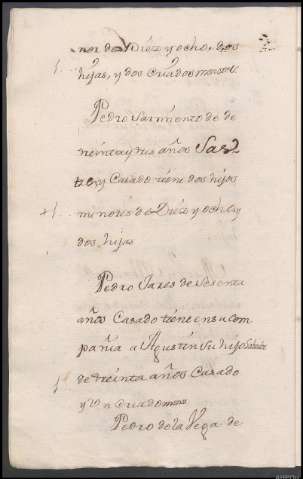 nor de Diez y ocho, dos
hijas, y dos Criados
Pedro Sarmiento de
treinta y tres años Sas
tre y Casado tiene dos hijos
menores de Diez y ocho y
dos hijas
Pedro Pares de Sesenta
años Casado tiene en su com
pañia a Agustin Su hijo
de treinta años Casado
y Un Criado
Pedro de la Vega de